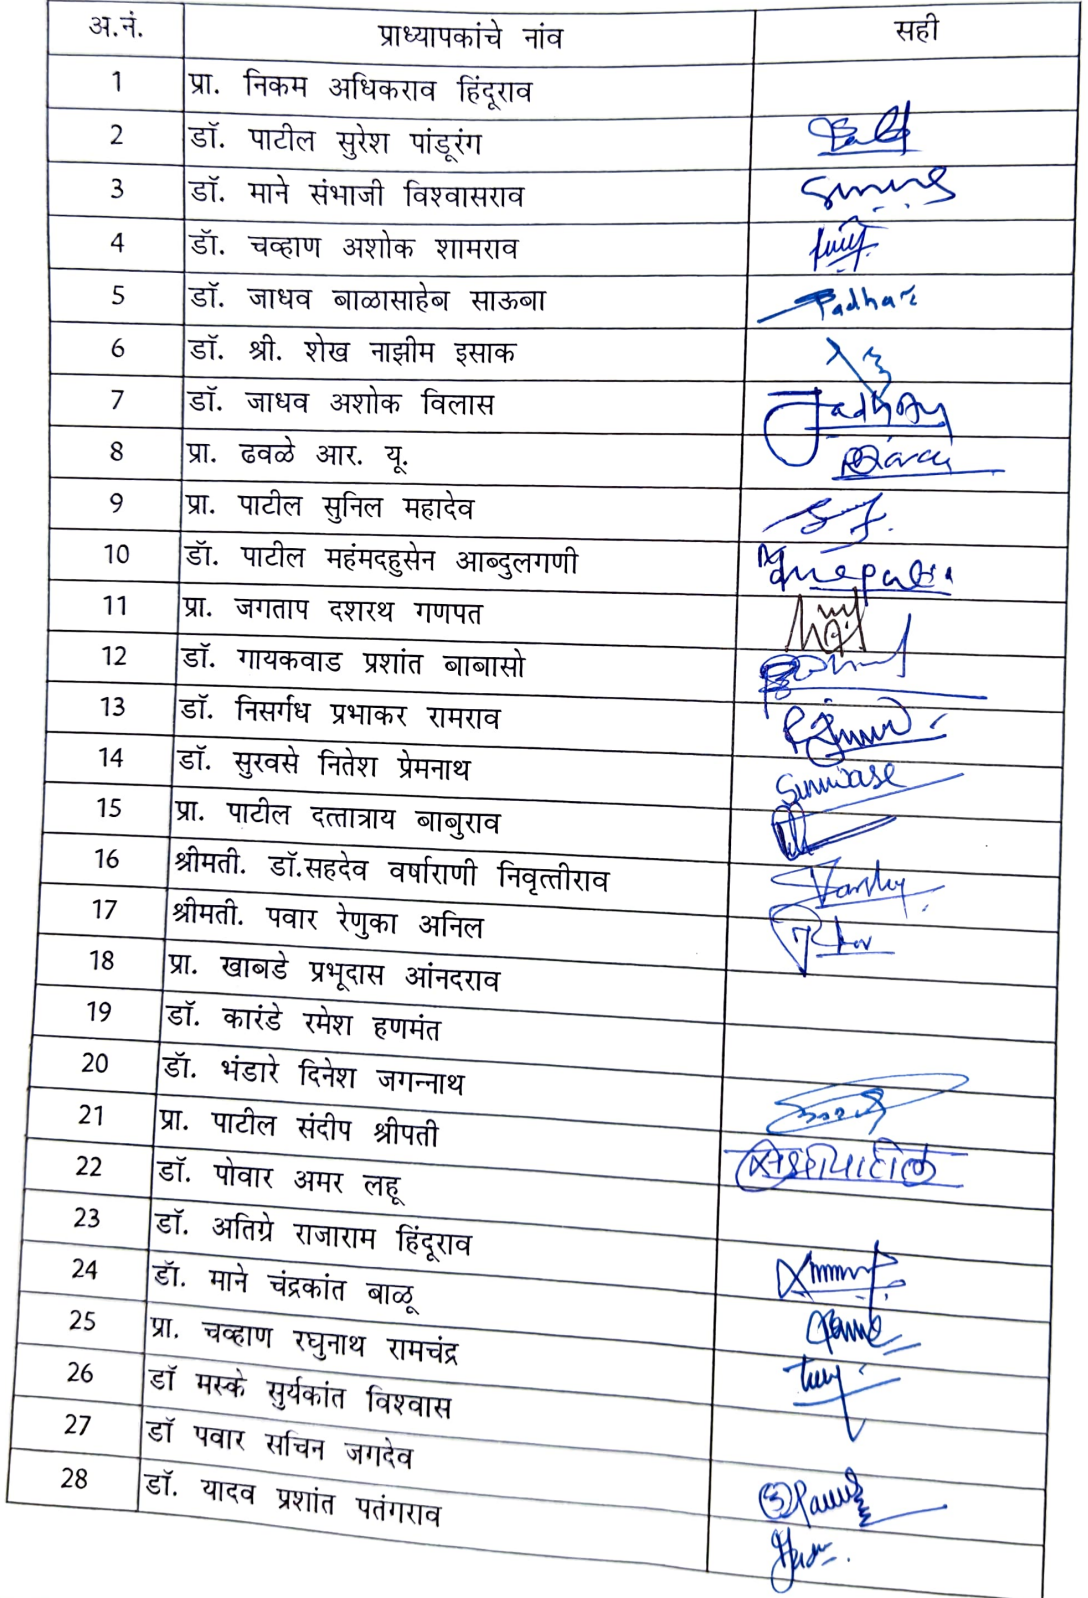 अ.नं. प्राध्यापकांचे नांव सही
1 प्रा. निकम अधिकराव हिंदूराव
2 डॉ. पाटील सुरेश पांडूरंग
3 डॉ. माने संभाजी विश्वासराव
4 डॉ. चव्हाण अशोक शामराव
5 डॉ. जाधव बाळासाहेब साऊबा
6 डॉ. श्री. शेख नाझीम इसाक
7 डॉ. जाधव अशोक विलास
8 प्रा. ढवळे आर. यू.
9 प्रा. पाटील सुनिल महादेव
10 डॉ. पाटील महंमदहुसेन आब्दुलगणी
11 प्रा. जगताप दशरथ गणपत
12 डॉ. गायकवाड प्रशांत बाबासो
13 डॉ. निसर्गंध प्रभाकर रामराव
14 डॉ. सुरवसे नितेश प्रेमनाथ Survase
15 प्रा. पाटील दत्तात्राय बाबुराव
16 श्रीमती. डॉ.सहदेव वर्षाराणी निवृत्तीराव
17 श्रीमती. पवार रेणुका अनिल
18 प्रा. खाबडे प्रभूदास आंनदराव
19 डॉ. कारंडे रमेश हणमंत
20 डॉ. भंडारे दिनेश जगन्नाथ
21 प्रा. पाटील संदीप श्रीपती
22 डॉ. पोवार अमर लहू
23 डॉ. अतिग्रे राजाराम हिंदूराव
24 डॉ. माने चंद्रकांत बाळू
25 प्रा. चव्हाण रघुनाथ रामचंद्र
26 डॉ मस्के सुर्यकांत विश्वास
27 डॉ पवार सचिन जगदेव
28 डॉ. यादव प्रशांत पतंगराव